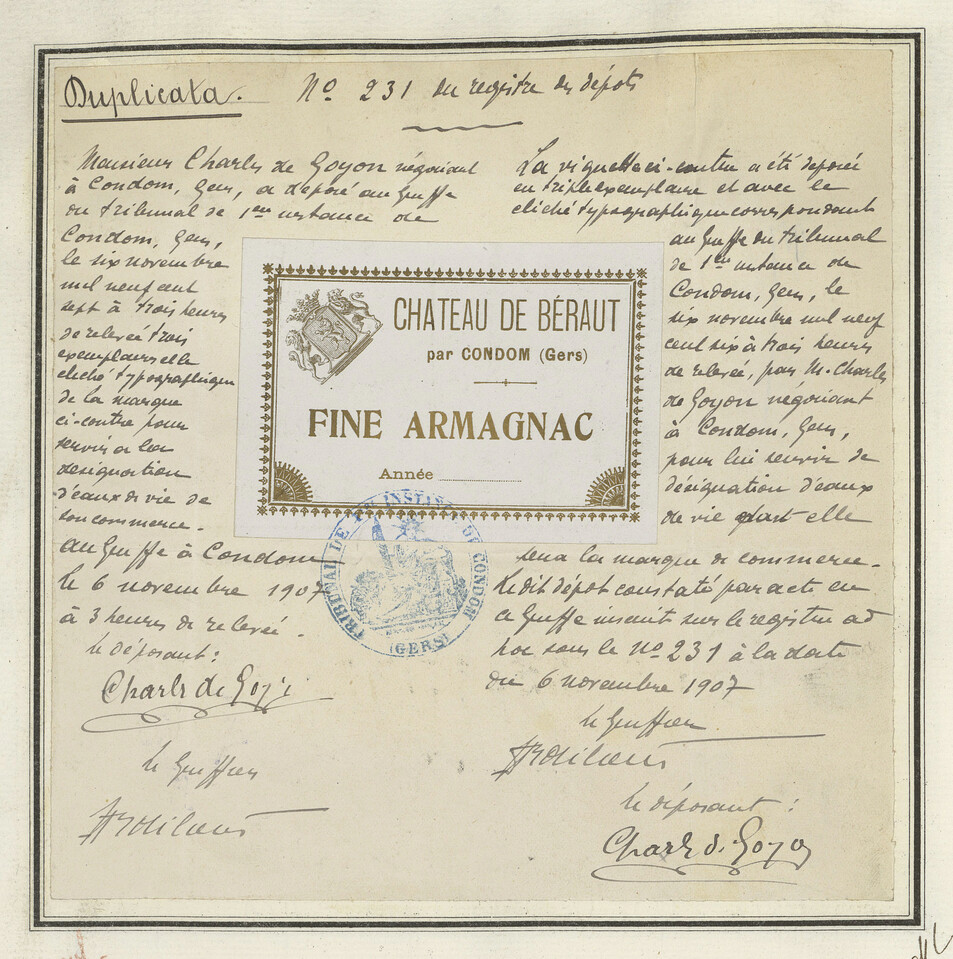 Duplicata. No 231 du registre des dépôts
Monsieur Charles de Goyon négociant
à Condom, Gers, a déposé au Greffe
du tribunal de 1ere instance de
Condom, Gers,
le six novembre
mil neuf cent
sept à trois heures
de relevée trois
exemplaires et le
cliché typographique
de la marque
ci-contre pour
servir à la
désignation
d'eaux de vie de
son commerce.
Au Greffe à Condom
le 6 novembre 1907
à 3 heures de relevée.
le déposant:
Charles de Goyon
le Greffier
La vignette ci-contre a été déposée
en triple exemplaire et avec le
cliché typographique correspondant
au Greffe du tribunal
de 1ere instance de
Condom, Gers, le
six novembre mil neuf
cent six à trois heures
de relevée, par M. Charles
de Goyon négociant
à Condom, Gers,
pour lui servir de
désignation d'eaux
de vie dont elle
sera la marque de commerce.
Ledit dépôt constaté par acte en
ce Greffe inscrit sur le registre ad
hoc sous le No 231 à la date
du 6 novembre 1907
le Greffier
le déposant:
Charles de Goyon
CHATEAU DE BÉRAUT
par CONDOM (Gers)
FINE ARMAGNAC
Année
TRIBUNAL DE 1RE INSTANCE DE CONDOM
(GERS)